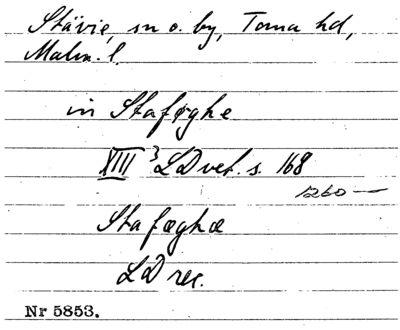 Stävie, sn o. by, Torna hd,
Malm. l.
in Staføghe
XIII 3 LDvet. s. 168
1260 —
Staføghæ
LD rec.
Nr 5853.